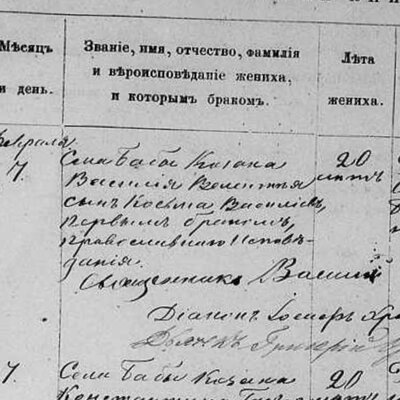 Мѣсяцъ
и день.
Званіе, имя, отчество, фамилія
и вѣроисповѣданіе жениха,
и которымъ бракомъ.
Лѣта
жениха.
февраля
7.
Села Бабы Козака
Василія
сынъ Косьма Василіевъ,
первымъ бракомъ,
православнаго исповѣ-
данія.
20
лѣтъ
Священникъ Василій
Діаконъ Іосифъ
Дьячекъ Григорій
7.
Села Бабы Козака
20